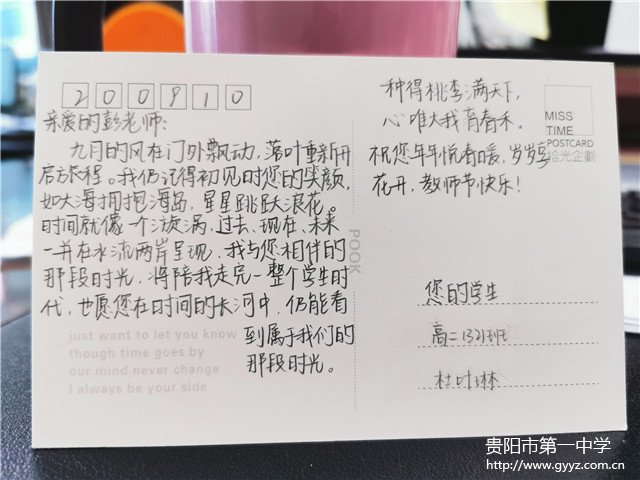 200910
亲爱的彭老师:
九月的风在门外飘动,落叶重新开
启方程。我仍记得初见时您的笑颜,
如大海拥抱海岛,星星跳跃浪花。
时间就像一个漩涡,过去、现在、未来
一并在水流两岸呈现,我与您相伴的
那段时光,将陪我走完一整个学生时
代,也愿您在时间的长河中,仍能看
到属于我们的
那段时光。
just want to let you know
though time goes by
our mind never change
I always be your side
POOK
种得桃李满天下,
心唯大我育春禾。
祝您年年悦春暖,岁岁享
花开,教师节快乐!
MISS
TIME
POSTCARD
拾光企劃
您的学生
高二(32)班
杜叶琳
贵阳市第一中学
http://www.gyyz.com.cn